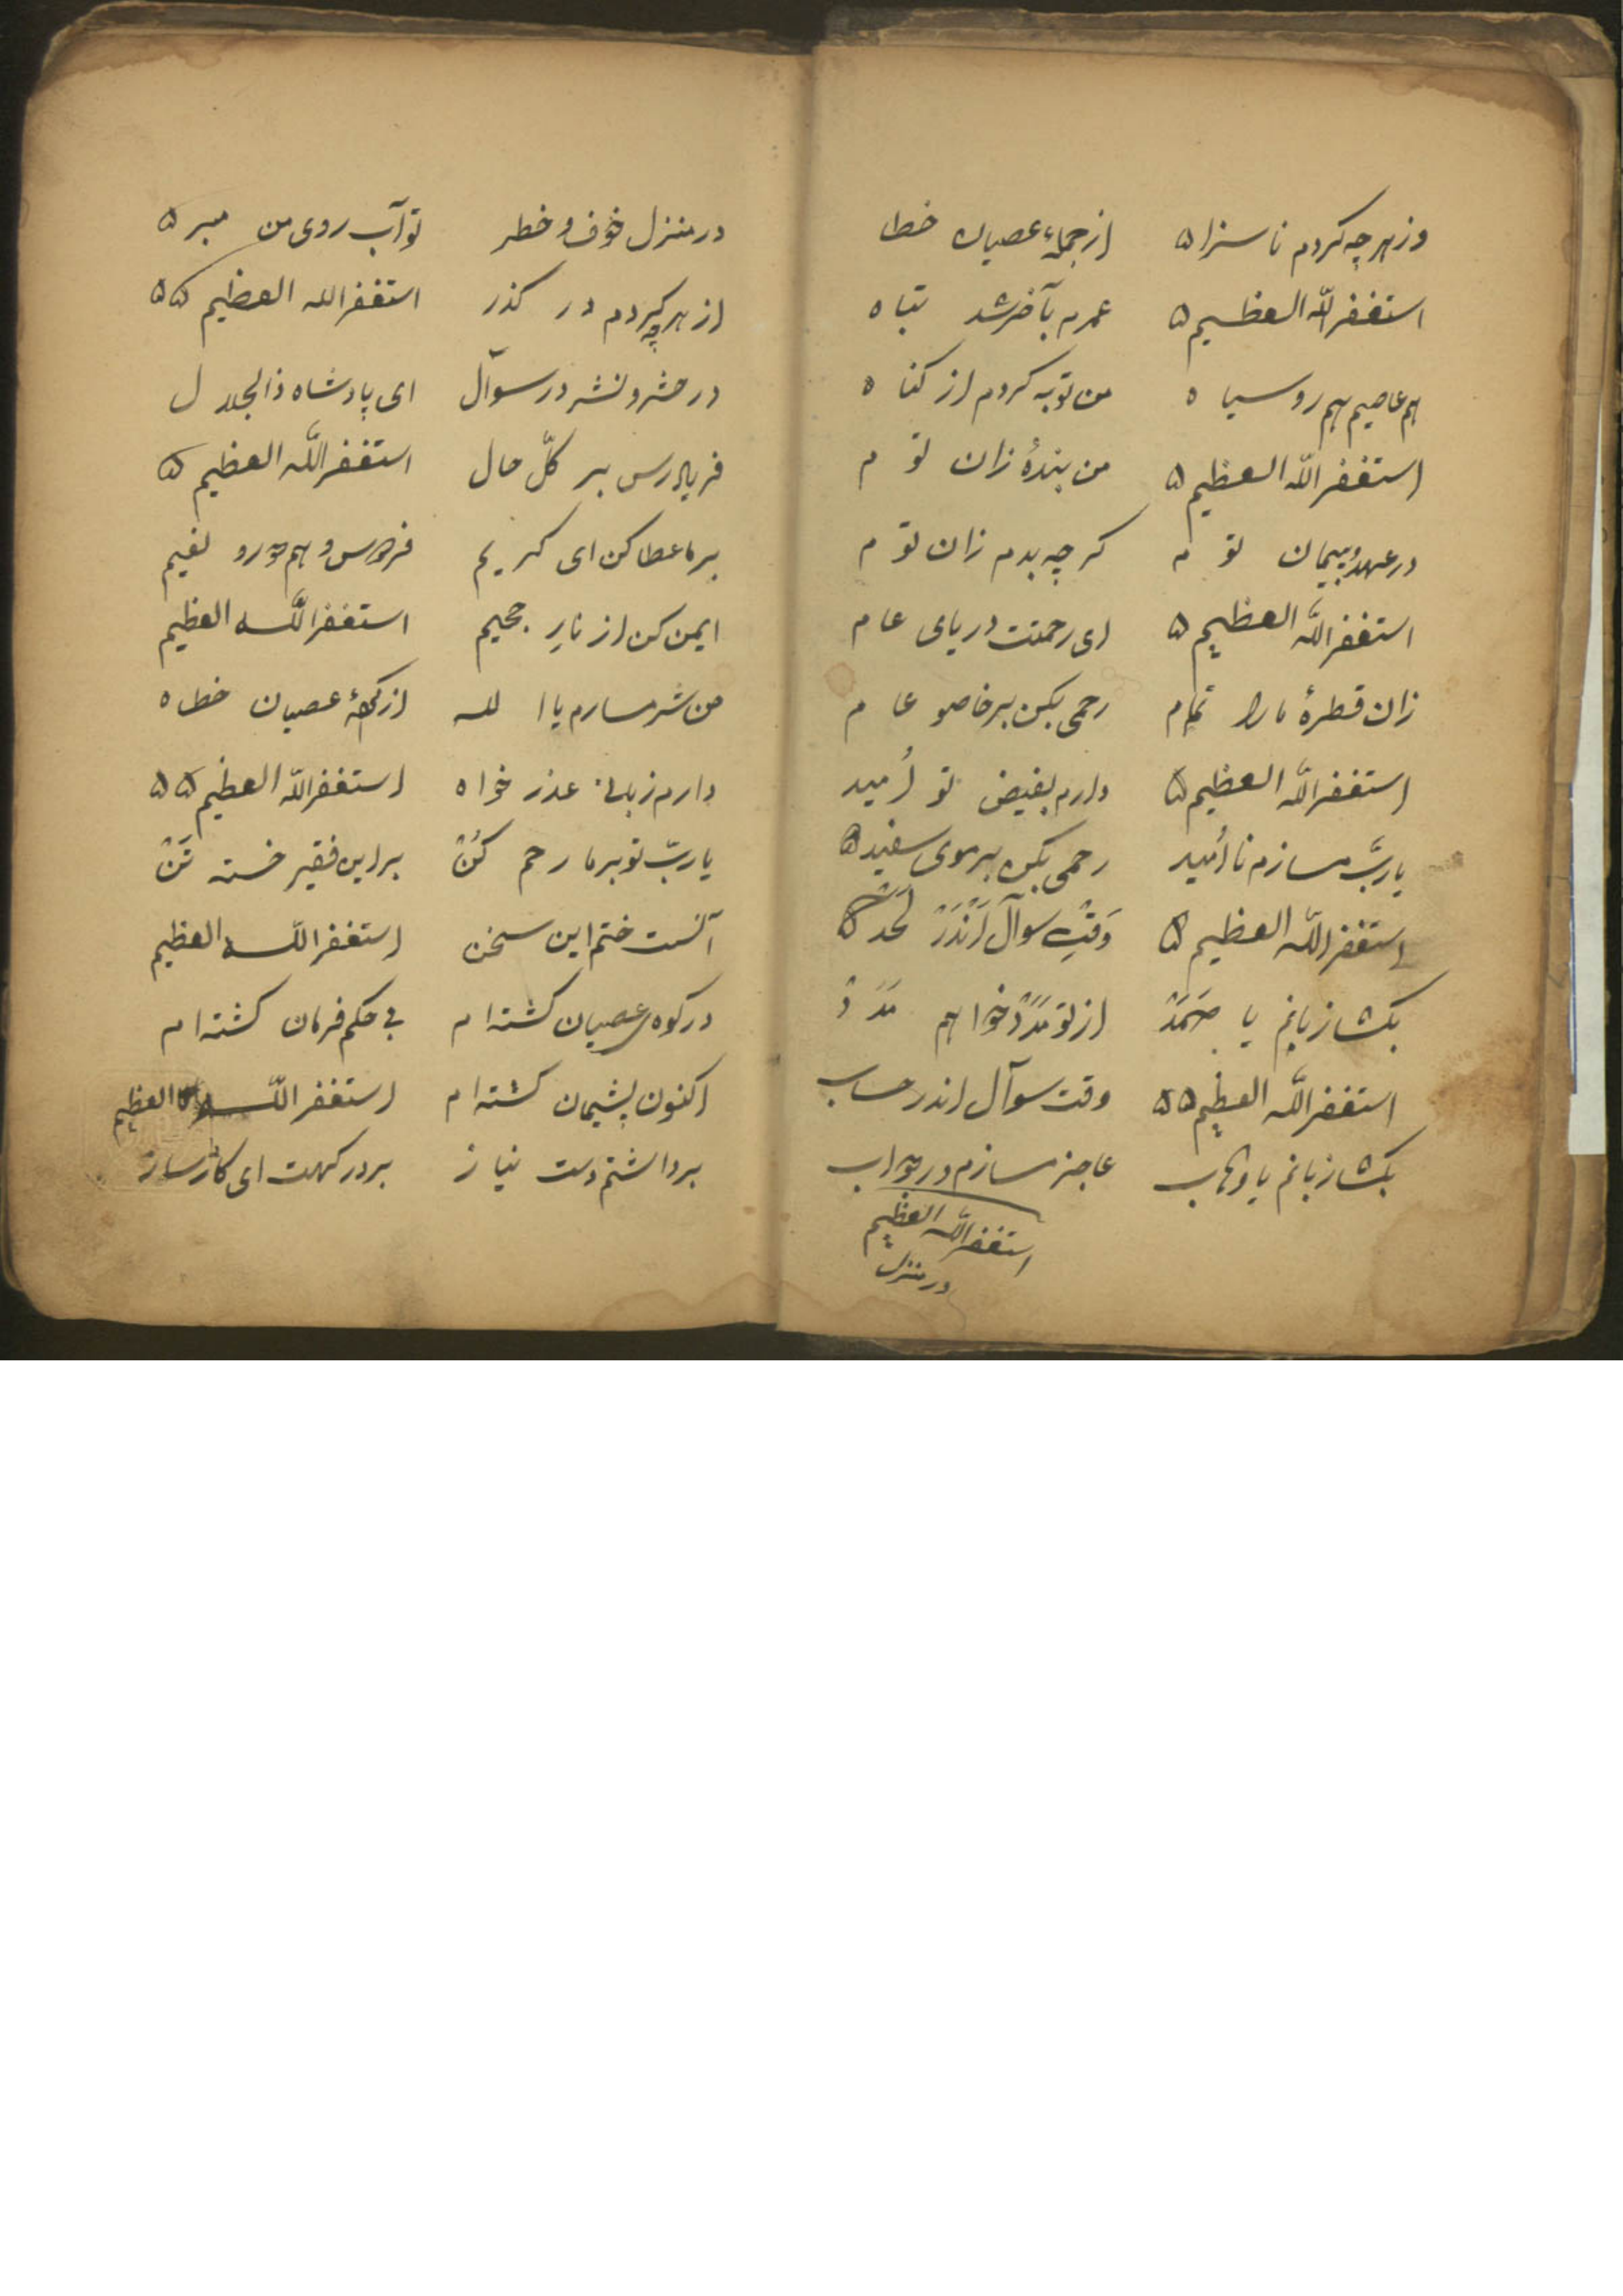 وز هر چه کردم ناسزا ه از جملهٔ عصیان خطا
استغفر اللّه العظیم ه عمرم بآخر شد تباه
هم عاصیم هم روسیاه من توبه کردم از کناه
استغفر اللّه العظیم ه من بندهٔ زان توم
در عهد و پیمان توم کر چه بدم زان توم
استغفر اللَّه العظیم ه ای رحمتت دریای عام
زان قطرهٔ مارا تمام رحمی بکن بر خاصو عام
استغفر اللَّه العظیم ه دارم بفیض تو اُمید
یا ربَّ مسازم نا اُمید رحمی بکن بر موی سفید ه
استغفر اللّه العظیم ه وَقتِ سوآل اَنْدَرْ لَحَدْ ه
بکشا زبانم یا صَمَدْ از تو مَدَدْ خواهم مَدَدْ
استغفر اللَّه العظیم ه ه وقت سوآل اندر حساب
بکشا زبانم یا وهّاب عاجز مسازم در جواب
استغفر اللَّه العظیم
در منزل
در منزل خوف و خطر تو آب روی من مبر ه
از هر چه کردم در کذر استغفر الله العظیم ه ه
در حشر و نشر در سوآل ای پادشاه ذالجلال
فریاد رس بر کلّ حال استغفر اللَّه العظیم ه
بر ما عطا کن ای کریم فردوس و هم نعیم
ایمن کن از نارِ جحیم استغفر اللَّه العظیم
من شرمسارم یا الله از عصیان خطاه
دارم زبانِ عذر خواه استغفر اللّه العظیم ه ه
یا ربّ تو بر ما رحم کُنْ بر این فقیر خسته تَنْ
آنست ختم این سخن استغفر اللّه العظیم
در کوه عصیان کشته ام فی حکم فرمان کشته ام
اکنون پشیمان کشته ام استغفر اللّه العظیم
برداشتم دست نیاز بر در کهت ای کارساز